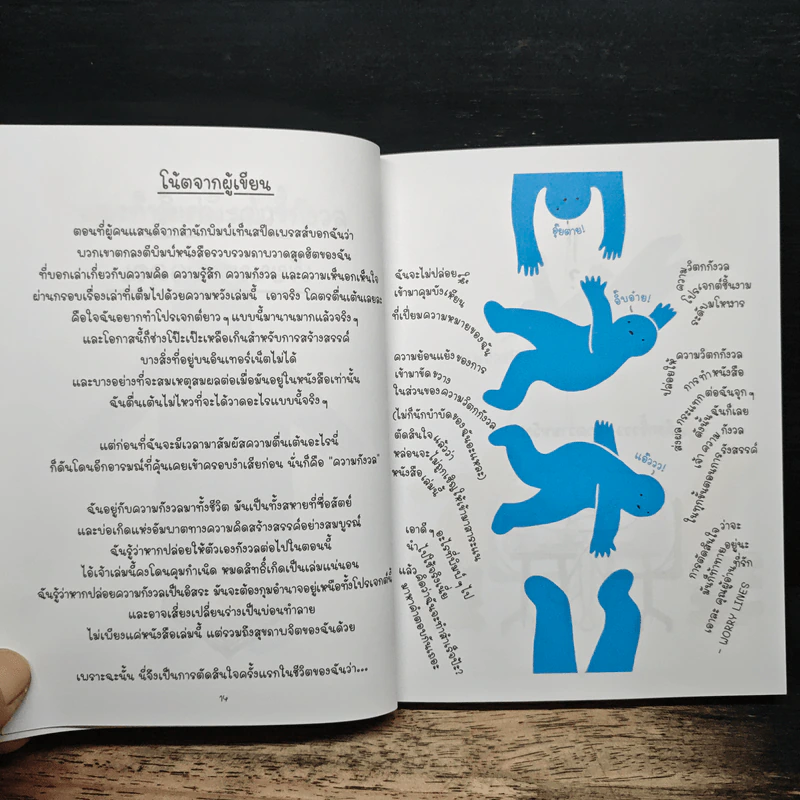 โน้ตจากผู้เขียน
ตอนที่ผู้คนแสนดีจากสำนักพิมพ์เท็นสปีดเพรสส์บอกฉันว่า
พวกเขาตกลงตีพิมพ์หนังสือรวบรวมภาพวาดสุดฮิตของฉัน
ที่บอกเล่าเกี่ยวกับความคิด ความรู้สึก ความกังวล และความเห็นอกเห็นใจ
ผ่านกรอบเรื่องเล่าที่เต็มไปด้วยความหวังเล่มนี้ เอาจริง โคตรตื่นเต้นเลยละ
คือใจฉันอยากทำโปรเจกต์ยาว ๆ แบบนี้มานานมากแล้วจริง ๆ
และโอกาสนี้ก็ช่างโป๊ะเป๊ะเหลือเกินสำหรับการสร้างสรรค์
บางสิ่งที่อยู่บนอินเทอร์เน็ตไม่ได้
และบางอย่างที่จะสมเหตุสมผลต่อเมื่อมันอยู่ในหนังสือเท่านั้น
ฉันตื่นเต้นไม่ไหวที่จะได้วาดอะไรแบบนี้จริง ๆ
แต่ก่อนที่ฉันจะมีเวลามาสัมผัสความตื่นเต้นอะไรนี่
ก็ดันโดนอีกอารมณ์ที่คุ้นเคยเข้าครอบงำเสียก่อน นั่นก็คือ "ความกังวล"
ฉันอยู่กับความกังวลมาทั้งชีวิต มันเป็นทั้งสหายที่ซื่อสัตย์
และบ่อเกิดแห่งอัมบาตทางความคิดสร้างสรรค์อย่างสมบูรณ์
ฉันรู้ว่าหากปล่อยให้ตัวเองกังวลต่อไปในตอนนี้
ไอ้เจ้าเล่มนี้คงโดนคุมกำเนิด หมดสิทธิ์เกิดเป็นเล่มแน่นอน
ฉันรู้ว่าหากปล่อยความกังวลเป็นอิสระ มันจะต้องกุมอำนาจอยู่เหนือทั้งโปรเจกต์นี้
และอาจเสี่ยงเปลี่ยนร่างเป็นบ่อนทำลาย
ไม่เพียงแค่หนังสือเล่มนี้ แต่รวมถึงสุขภาพจิตของฉันด้วย
เพราะฉะนั้น นี่จึงเป็นการตัดสินใจครั้งแรกในชีวิตของฉันว่า...
74
ฉันจะไม่ปล่อยให้
เข้ามาคุมบังเหียน
ที่เปี่ยมความหมายของฉัน
ความวิตกกังวล
โปรเจกต์ชิ้นงาม
ระดับมโหฬาร
ความย้อนแย้งของการ
เข้ามาขัดขวาง
ในส่วนของความวิตกกังวล
(ไม่ก็นักบำบัดของฉันอะแหละ)
ตัดสินใจแล้วว่า
หล่อนจะไม่ถูกเชิญให้เข้ามาสาระแน
หนังสือเล่มนี้
ปล่อยให้ความวิตกกังวล
การทำหนังสือ
ส่งผลกระแทกต่อฉันจุก ๆ
ดังนั้น ฉันก็เลย
เจ้าความกังวล
ในทุกขั้นตอนการรังสรรค์
เอาดี ๆ อะไรที่พิมพ์ไป
นำไปใช้จริงเนี่ย
แล้วคิดว่าฉันจะทำสำเร็จป้ะ?
มาหาคำตอบกันเถอะ
การตัดสินใจว่าจะ
มันก็ท้าทายอยู่นะ
เอาละ คุณผู้อ่านที่รัก
– WORRY LINES
อุ๊ยต่าย!
อึ๋บอ๋าย!
แอ้ววว!